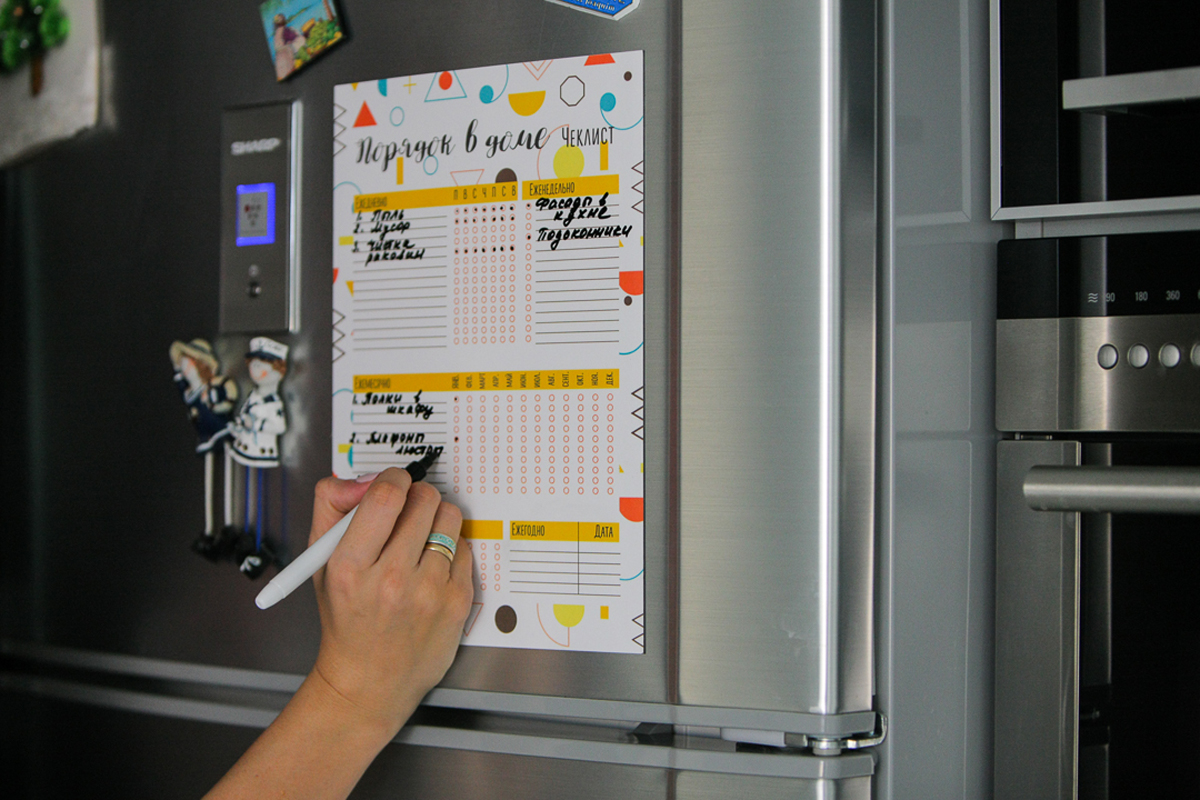 SHARP
Порядок в доме Чеклист
Ежедневно П В С Ч П С В
1. Пыль
2. Мусор
3. Чистка
раковин
Еженедельно
Фасады в
кухне
Подоконники
Ежемесячно ЯНВ. ФЕВ. МАРТ АПР. МАЙ ИЮН. ИЮЛ. АВГ. СЕНТ. ОКТ. НОЯ. ДЕК.
1. Полки в
шкафу
2. Плафоны
люстры
Ежегодно Дата
90 180 360